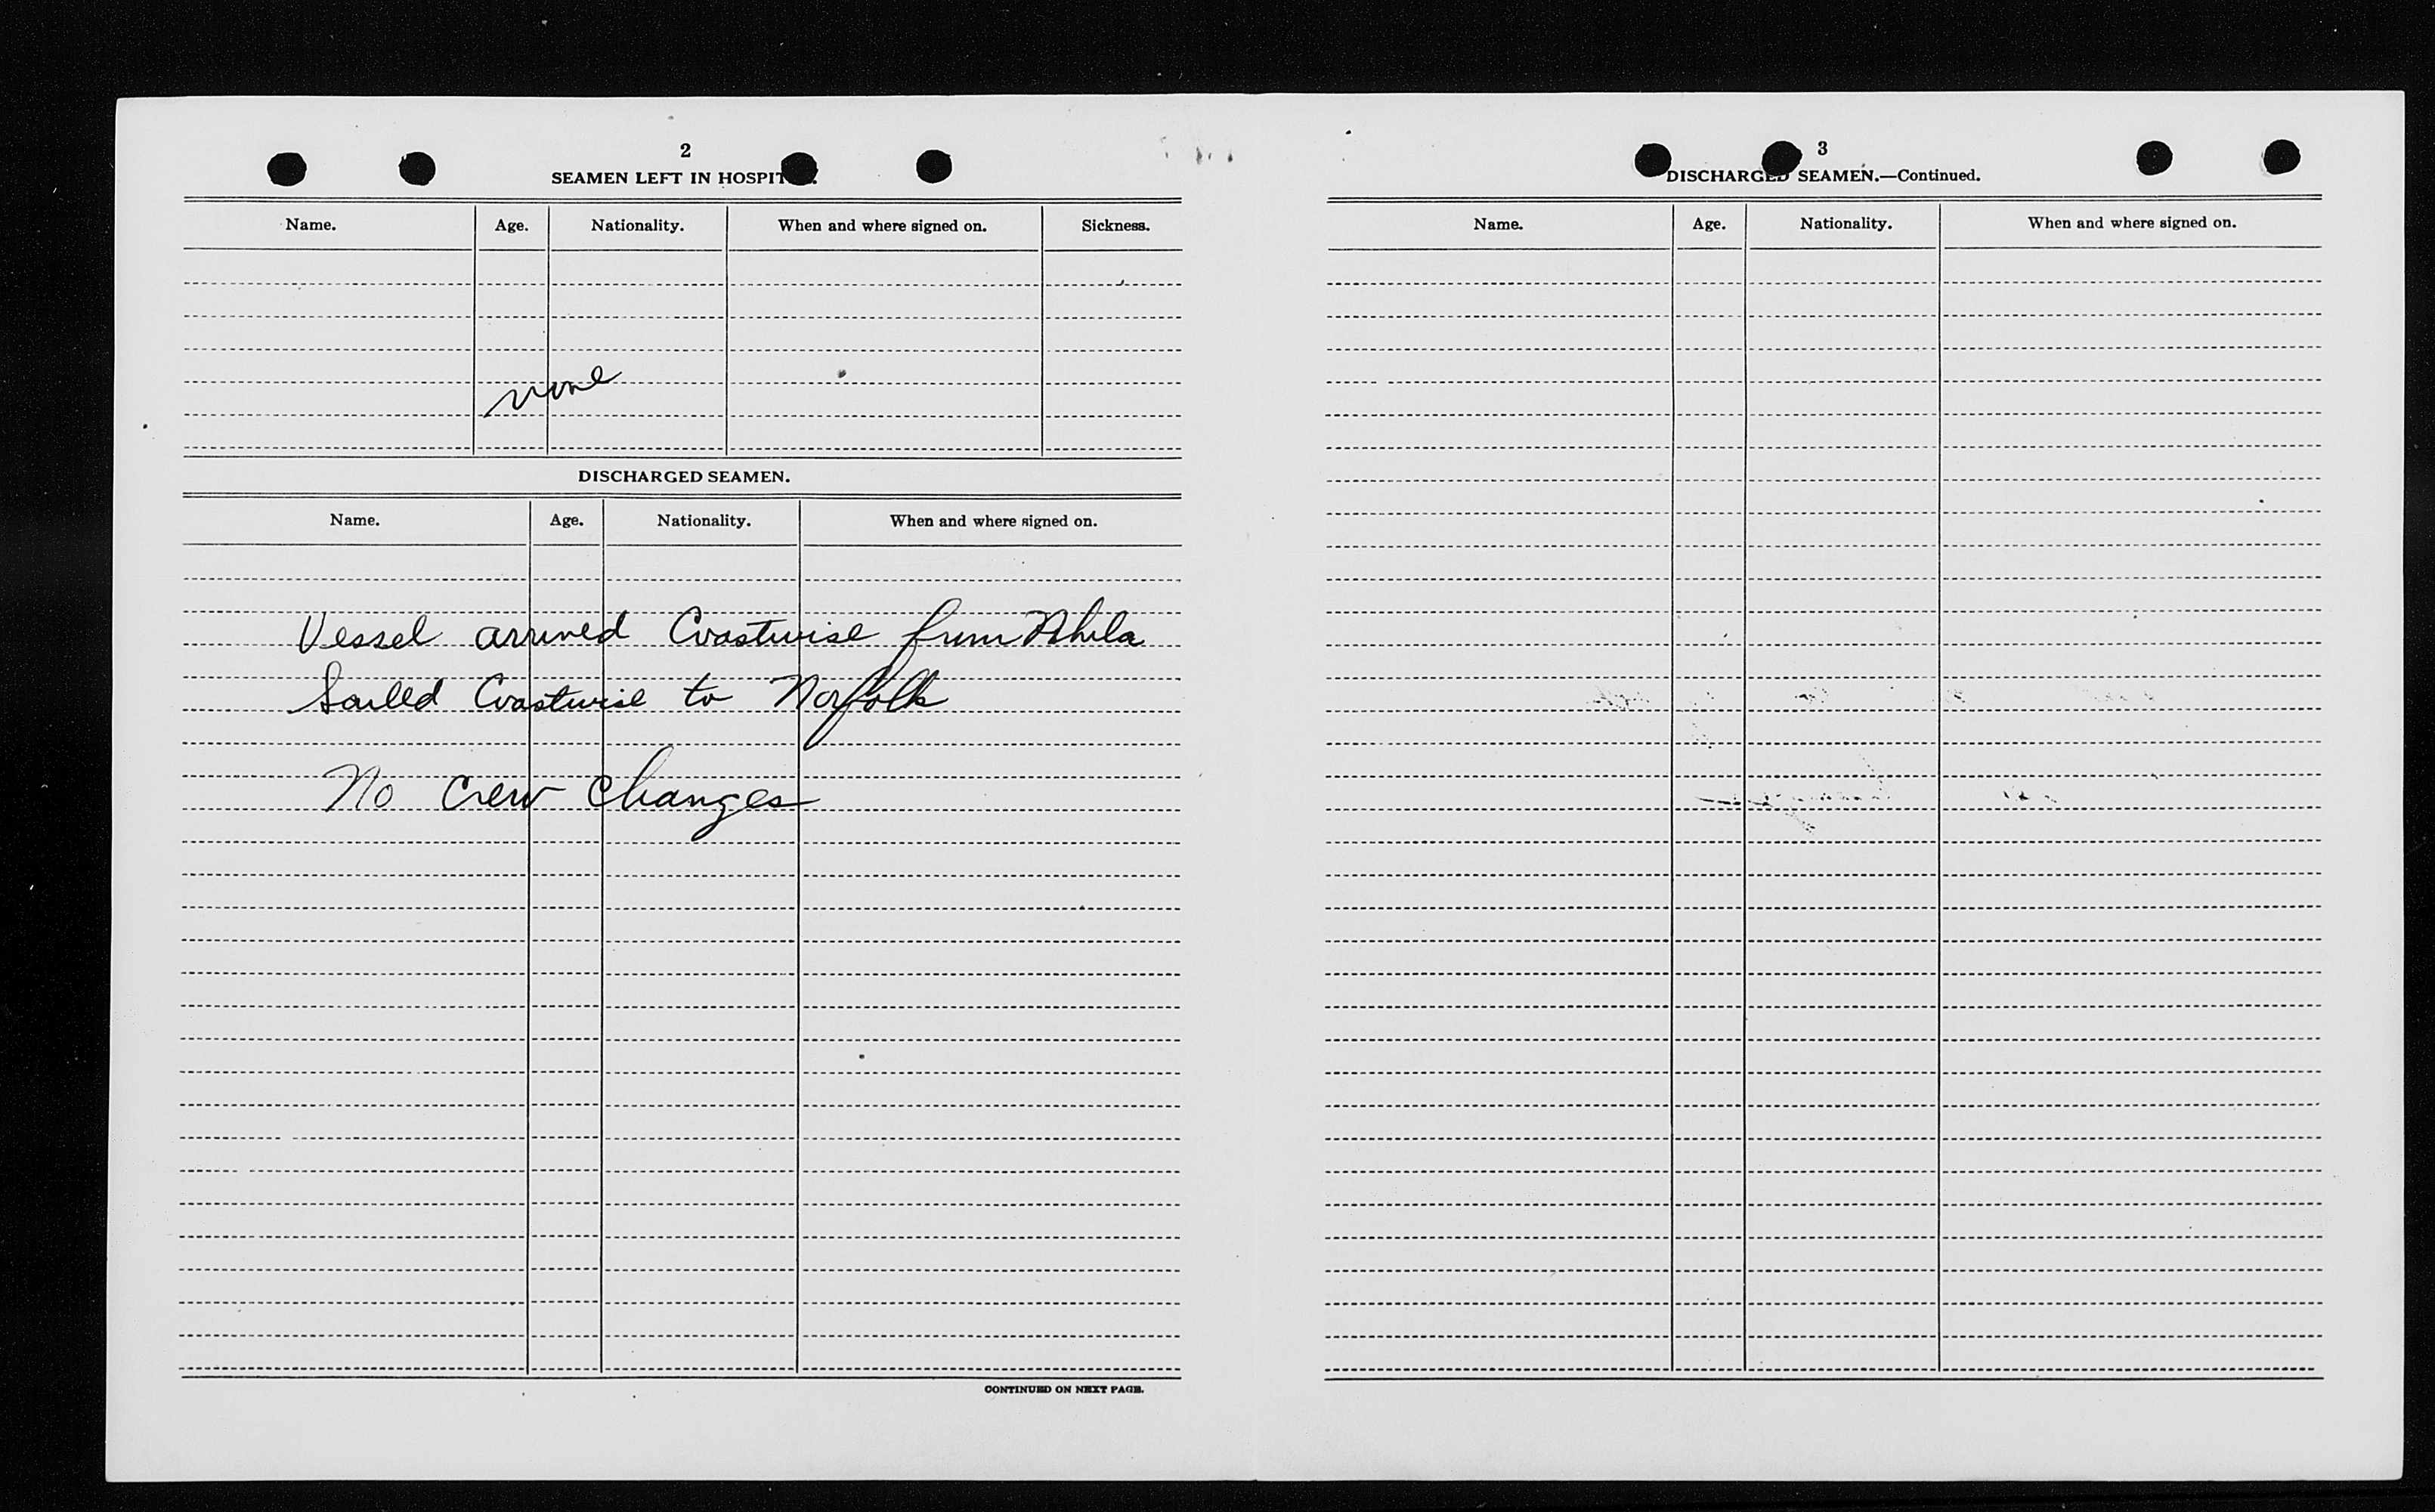 2
SEAMEN LEFT IN HOSPIT
Name. Age. Nationality. When and where signed on. Sickness.
none
DISCHARGED SEAMEN.
Name. Age. Nationality. When and where signed on.
Vessel arrived Coastwise from Phila
Sailed Coastwise to Norfolk
No crew changes
CONTINUED ON NEXT PAGE.
3
DISCHARGED SEAMEN.—Continued.
Name. Age. Nationality. When and where signed on.